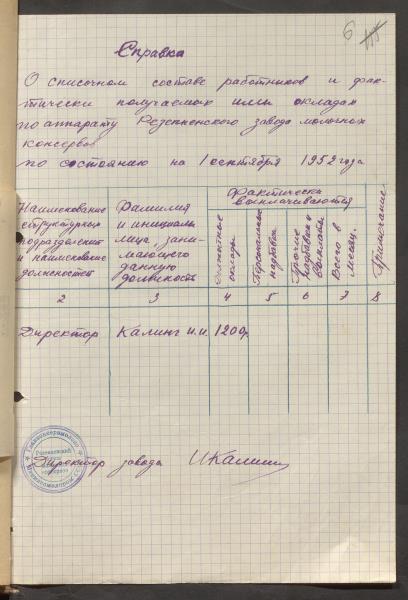 6
Справка
О списочном составе работников и фак-
тически получаемых ими окладам
по аппарату Резекненского завода молочных
консервов
по состоянию на 1 сентября 1952 года
Наименование
структурных
подразделений
и наименование
должностей
Фамилия
и инициалы
лица, зани-
мающего
данную
должность
Фактически
выплачиваются
Должностные
оклады
Персональные
надбавки
Прочие
надбавки и
выплаты
Всего в
месяц.
Примечание
2 3 4 5 6 7 8
Директор Калинг И.И. 1200р.
Директор завода